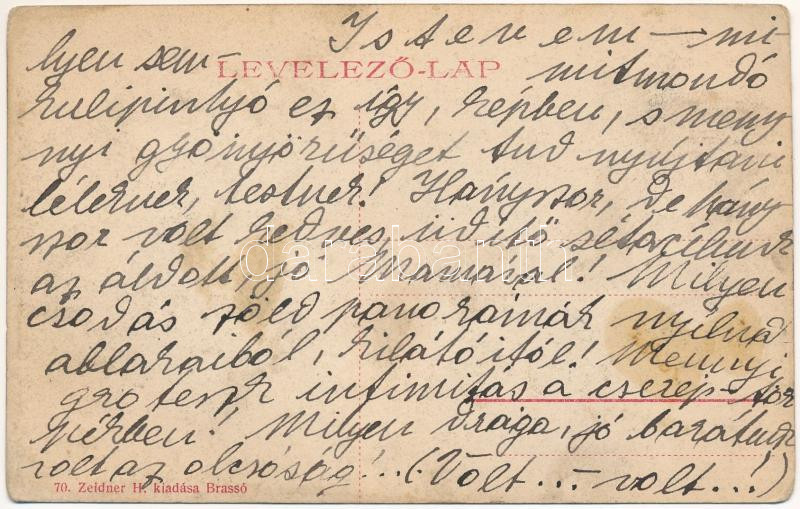 Istenem – mi-
lyen sem- mitmondó
LEVELEZŐ-LAP
kulipintyó ez így, képben, s meny
nyi gyönyörűséget tud nyújtani
léleknek, testnek! Hányszor, de hány
szor volt kedves, üdítő sétacélunk
az áldott, jó Mamával! Milyen
csodás zöld panorámák nyílnak
ablakaiból, kilátóitól! Mennyi
groteszk intimitás a cserép-
! Milyen drága, jó barátunk
volt az olcsóság!.. (Volt... volt..!)
70. Zeidner H. kiadása Brassó
darabanth